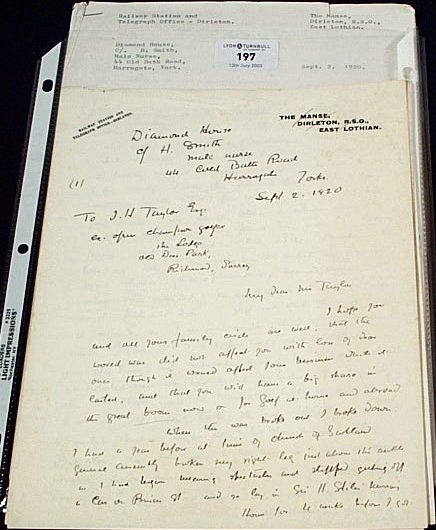 Railway Station and
Telegraph Office - Dirleton.
The Manse,
Dirleton, R.S.O.,
East Lothian.
Diamond House,
C/. H. Smith,
Male Nurse,
44 Cold Bath Road,
Harrogate, York.
Sept. 2, 1920.
LYON & TURNBULL
197
13th July 2003
RAILWAY STATION AND
TELEGRAPH OFFICE - DIRLETON.
THE MANSE,
DIRLETON, R.S.O.,
EAST LOTHIAN.
Diamond House
c/ H. Smith
male nurse
44 Cold Bath Road
Harrogate Yorks.
Sept 2. 1920
(1)
To J. H. Taylor Esq.
ex. open champion golfer
The Lodge
Old Deer Park,
Richmond, Surrey
My dear Mr Taylor
I hope you
and all your family circle are well, that the
world war did not affect you with loss of dear
ones though it would affect your business while it
lasted, and that you will have a big share in
the great boom now on for golf at home and abroad
When the war broke out I broke down.
I had a year before at time of Church of Scotland
General Assembly broken my right leg just above the ankle
as I had begun wearing and slipped getting off
a Car on Princes St and so lay in Sir H. Stiles nursing
Home for 4 weeks before I got
LIGHT IMPRESSIONS